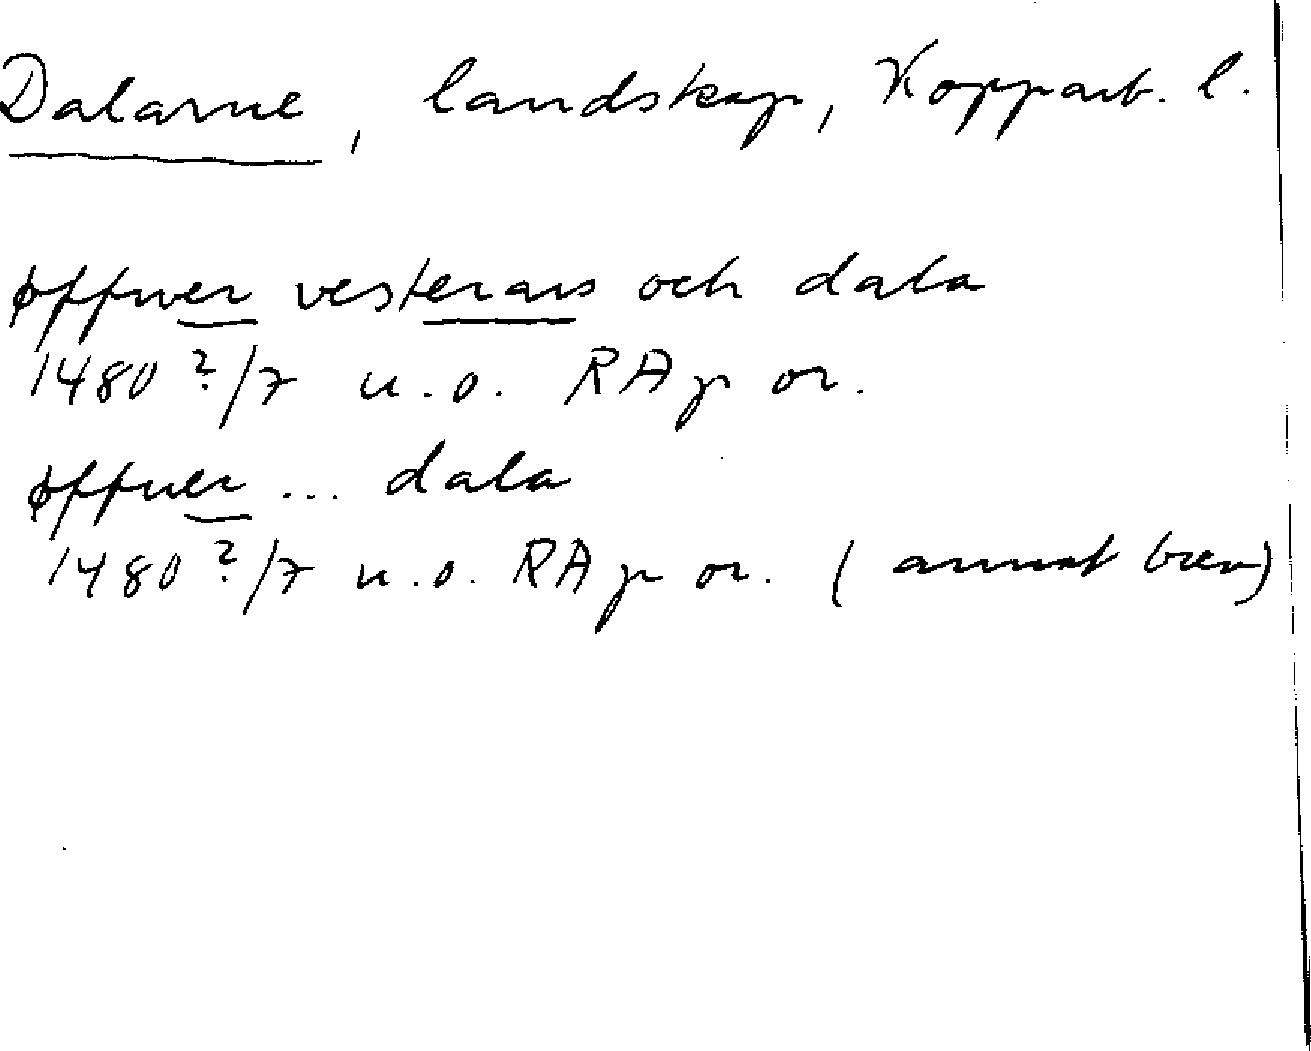 Dalarne, landskap, Kopparb. l.
øffwer vesterars och dala
1480 ?/7 u.o. RAp or.
øffuer ... dala
1480 ?/7 u.o. RAp or. (annat brev)